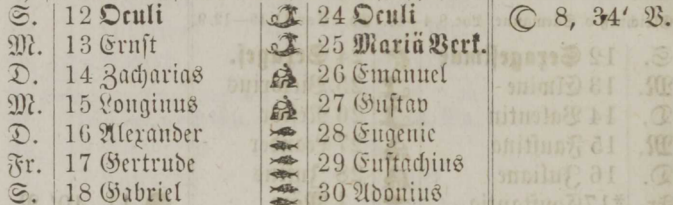 S. 12 Oculi 24 Oculi ☾ 8, 34' V.
M. 13 Ernst 25 Mariä Verk.
D. 14 Zacharias 26 Emanuel
M. 15 Longinus 27 Gustav
D. 16 Alexander 28 Eugenie
Fr. 17 Gertrude 29 Eustachius
S. 18 Gabriel 30 Adonius